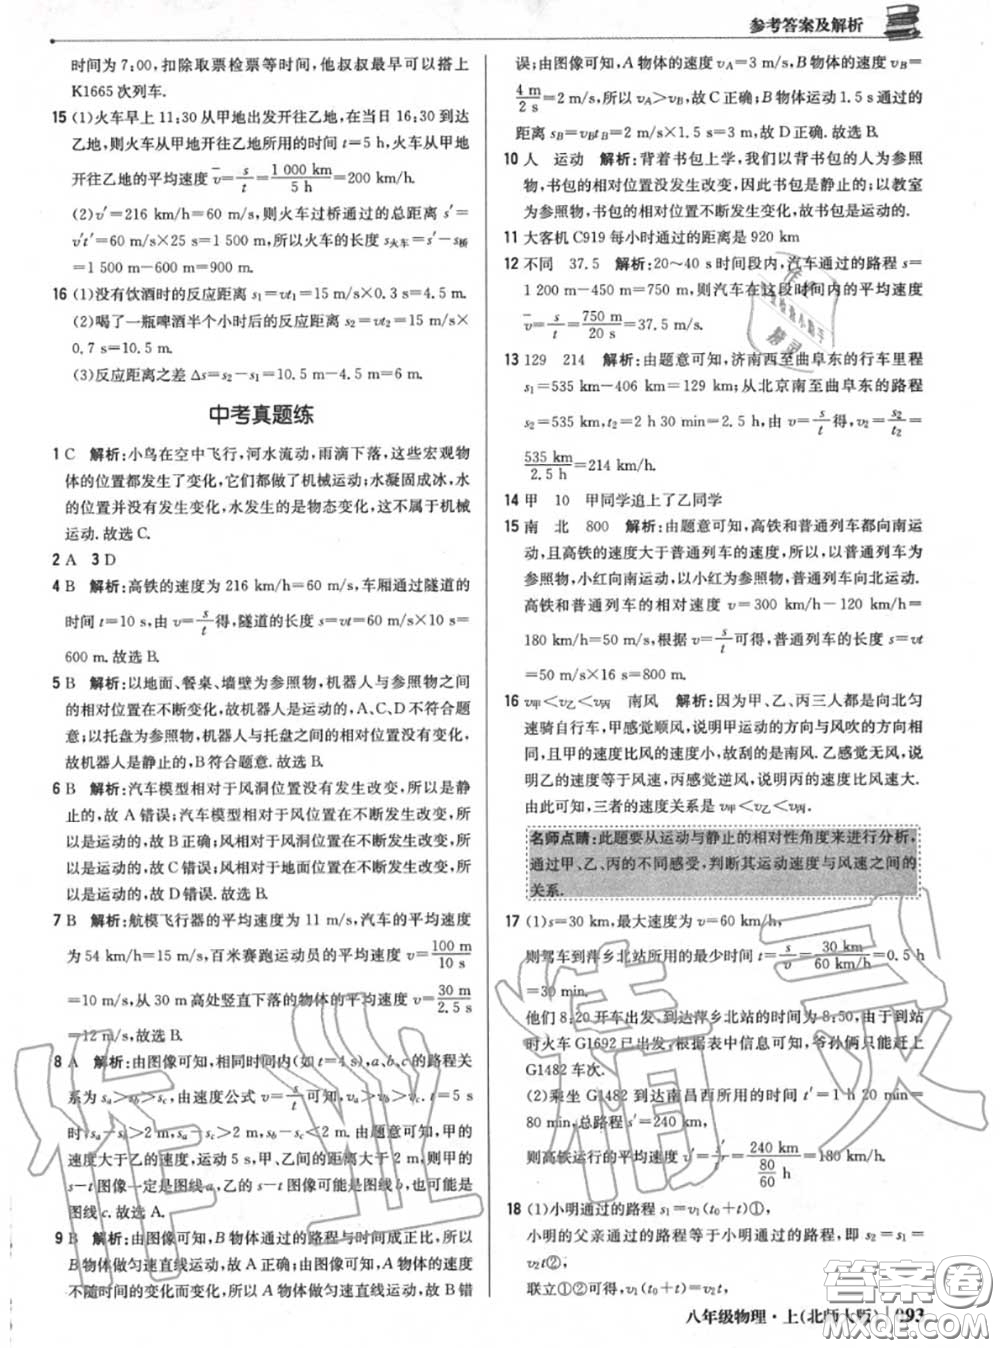 参考答案及解析
时间为7:00,扣除取票检票等时间,他叔叔最早可以搭上
K1665次列车.
15 (1)火车早上11:30从甲地出发开往乙地,在当日16:30到达
乙地,则火车从甲地开往乙地所用的时间t=5 h,火车从甲地
开往乙地的平均速度v̄=s/t=1 000 km/5 h=200 km/h.
(2)v′=216 km/h=60 m/s,则火车过桥通过的总距离s′=
v′t′=60 m/s×25 s=1 500 m,所以火车的长度s火车=s′-s桥
=1 500 m-600 m=900 m.
16 (1)没有饮酒时的反应距离s₁=vt₁=15 m/s×0.3 s=4.5 m.
(2)喝了一瓶啤酒半个小时后的反应距离s₂=vt₂=15 m/s×
0.7 s=10.5 m.
(3)反应距离之差Δs=s₂-s₁=10.5 m-4.5 m=6 m.
中考真题练
1 C 解析:小鸟在空中飞行,河水流动,雨滴下落,这些宏观物
体的位置都发生了变化,它们都做了机械运动;水凝固成冰,水
的位置并没有发生变化,水发生的是物态变化,这不属于机械
运动.故选C.
2 A 3 D
4 B 解析:高铁的速度为216 km/h=60 m/s,车厢通过隧道的
时间t=10 s,由v=s/t得,隧道的长度s=vt=60 m/s×10 s=
600 m.故选B.
5 B 解析:以地面、餐桌、墙壁为参照物,机器人与参照物之间
的相对位置在不断变化,故机器人是运动的,A、C、D不符合题
意;以托盘为参照物,机器人与托盘的相对位置没有变化,
故机器人是静止的,B符合题意.故选B.
6 B 解析:汽车模型相对于风洞位置没有发生改变,所以是静
止的,故A错误;汽车模型相对于风位置在不断发生改变,所
以是运动的,故B正确;风相对于风洞位置在不断发生改变,
所以是运动的,故C错误;风相对于地面位置在不断发生改变,
所以是运动的,故D错误.故选B.
7 B 解析:航模飞行器的平均速度为11 m/s,汽车的平均速度
为54 km/h=15 m/s,百米赛跑运动员的平均速度v=100 m/10 s
=10 m/s,从30 m高处竖直下落的物体的平均速度v=30 m/2.5 s
=12 m/s,故选B.
8 A 解析:由图像可知,相同时间内(如t=4 s),a、b、c的路程关
系为sₐ>s_b>s_c,由速度公式v=s/t可知,vₐ>v_b>v_c.t=5 s
时,sₐ-s_b>2 m,sₐ-s_c>2 m,s_b-s_c<2 m.由题意可知,甲的
速度大于乙的速度,运动5 s,甲、乙间的距离大于2 m,则甲的
s-t图像一定是图线a,乙的s-t图像可能是图线b,也可能是
图线c.故选A.
9 B 解析:由图像可知,B物体通过的路程与时间成正比,所以
B物体做匀速直线运动,故A正确;由图像可知,A物体的速度
不随时间的变化而变化,所以A物体做匀速直线运动,故B错
误;由图像可知,A物体的速度vA=3 m/s,B物体的速度vB=
4 m/2 s=2 m/s,所以vA>vB,故C正确;B物体运动1.5 s通过的
距离sB=vBtB=2 m/s×1.5 s=3 m,故D正确.故选B.
10 人 运动 解析:背着书包上学,我们以背书包的人为参照
物,书包的相对位置没发生改变,因此书包是静止的;以教室
为参照物,书包的相对位置不断发生变化,故书包是运动的.
11 大客机C919每小时通过的距离是920 km
12 不同 37.5 解析:20～40 s时间段内,汽车通过的路程s=
1 200 m-450 m=750 m,则汽车在这段时间内的平均速度
v̄=s/t=750 m/20 s=37.5 m/s.
13 129 214 解析:由题意可知,济南西至曲阜东的行车里程
s₁=535 km-406 km=129 km;从北京南至曲阜东的路程
s₂=535 km,t₂=2 h 30 min=2.5 h,由v=s/t得,v₂=s₂/t₂=
535 km/2.5 h=214 km/h.
14 甲 10 甲同学追上了乙同学
15 南 北 800 解析:由题意可知,高铁和普通列车都向南运
动,且高铁的速度大于普通列车的速度,所以,以普通列车为
参照物,小红向南运动,以小红为参照物,普通列车向北运动.
高铁和普通列车的相对速度v=300 km/h-120 km/h=
180 km/h=50 m/s,根据v=s/t可得,普通列车的长度s=vt
=50 m/s×16 s=800 m.
16 v甲<v乙<v丙 南风 解析:因为甲、乙、丙三人都是向北匀
速骑自行车,甲感觉顺风,说明甲运动的方向与风吹的方向相
同,且甲的速度比风的速度小,故刮的是南风.乙感觉无风,说
明乙的速度等于风速,丙感觉逆风,说明丙的速度比风速大.
由此可知,三者的速度关系是v甲<v乙<v丙.
名师点睛:此题要从运动与静止的相对性角度来进行分析,
通过甲、乙、丙的不同感受,判断其运动速度与风速之间的
关系.
17 (1)s=30 km,最大速度为v=60 km/h,
则驾车到萍乡北站所用的最短时间t=s/v=30 km/60 km/h=0.5 h
=30 min.
他们8:20开车出发,到达萍乡北站的时间为8:50,由于到站
时火车G1692已出发,根据表中信息可知,爷孙俩只能赶乘
G1482车次.
(2)乘坐G1482到达南昌西所用的时间t′=1 h 20 min=
80 min,总路程s′=240 km,
则高铁运行的平均速度v′=s′/t′=240 km/(80/60 h)=180 km/h.
18 (1)小明通过的路程s₁=v₁(t₀+t)①,
小明的父亲通过的路程等于小明通过的路程,即s₂=s₁=
v₂t②,
联立①②可得,v₁(t₀+t)=v₂t,
八年级物理·上(北师大版) 093
作业精灵
答案圈
MXQE.COM